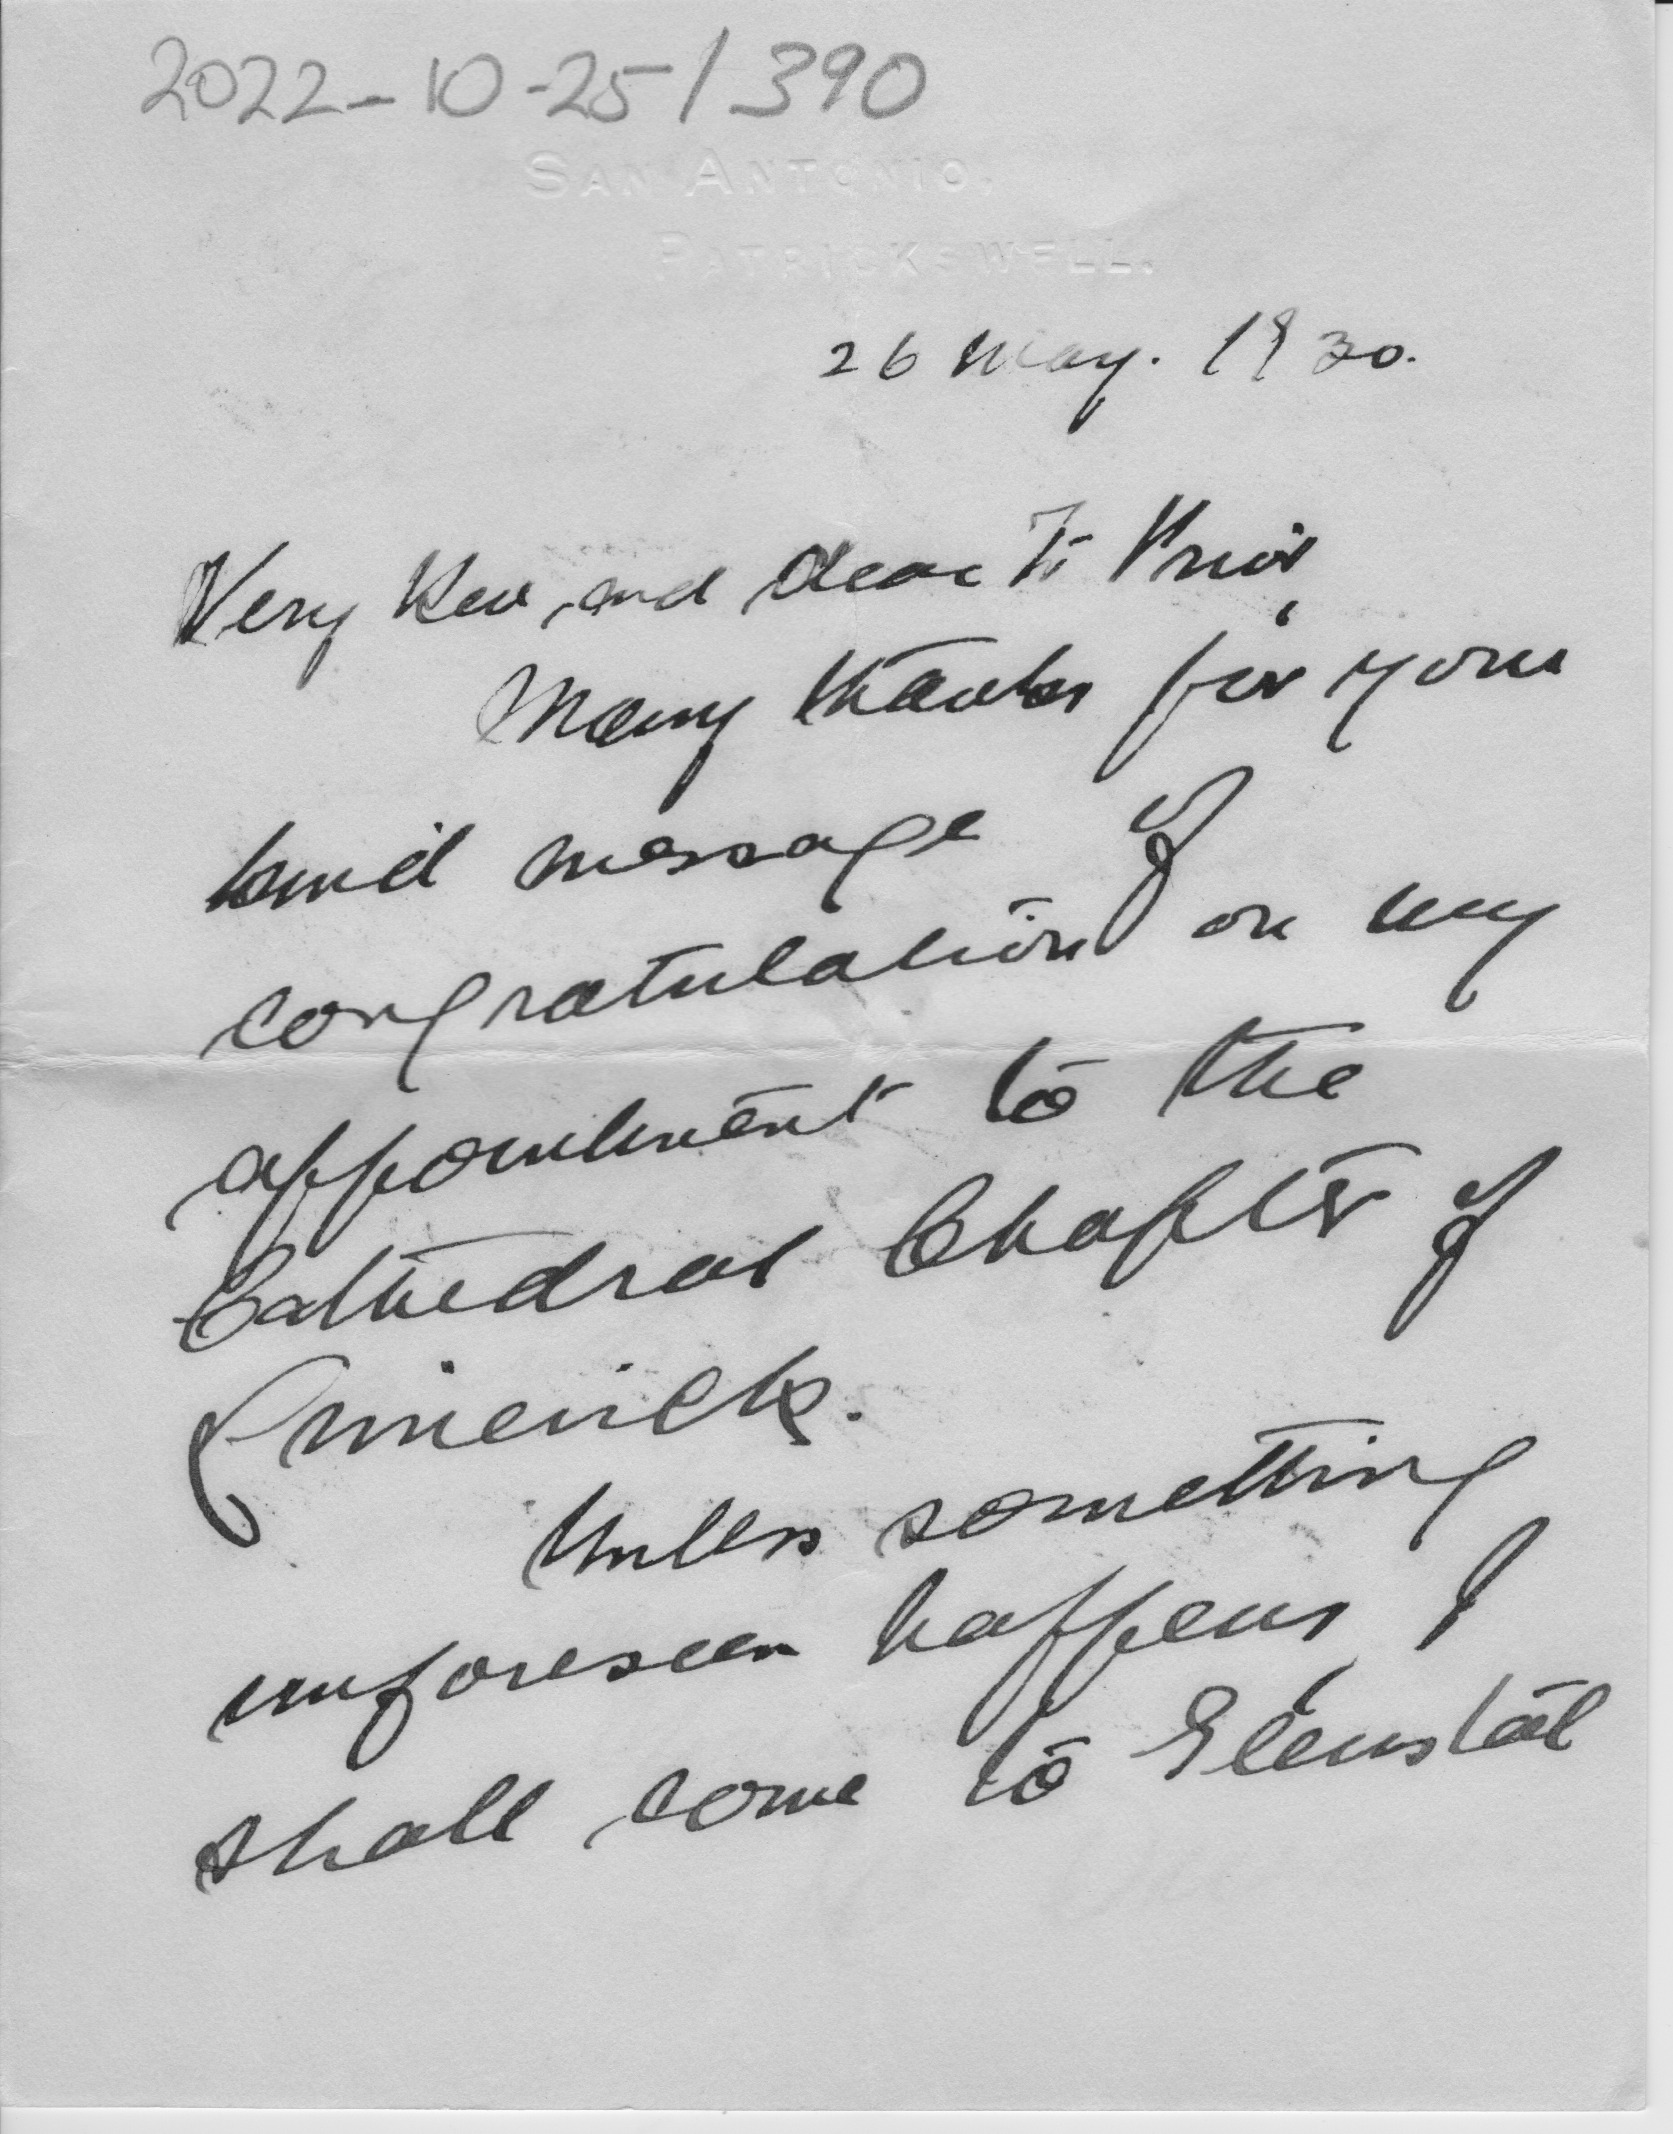 2022-10-25/390
SAN ANTONIO.
PATRICKSWELL.
26 May. 1930.
Very Rev, and dear Fr Prior,
Many thanks for your
kind message of
congratulation on my
appointment to the
Cathedral Chapter of
Limerick.
Unless something
unforeseen happens, I
shall come to Glenstal